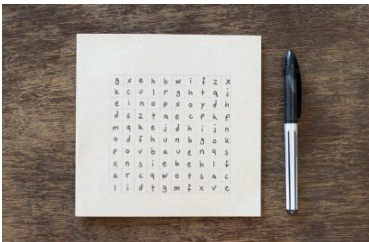 g x e h b w i f z x
k c u l r g h t q j
e i n o p x o y d h
d s z t a e c p k p
m q k e j d h i j n
o d f h u n b g o k
p o v b a u e n q s
x n s i e b e h l f
a r c q w o t s a c
l i d t g m f x v e